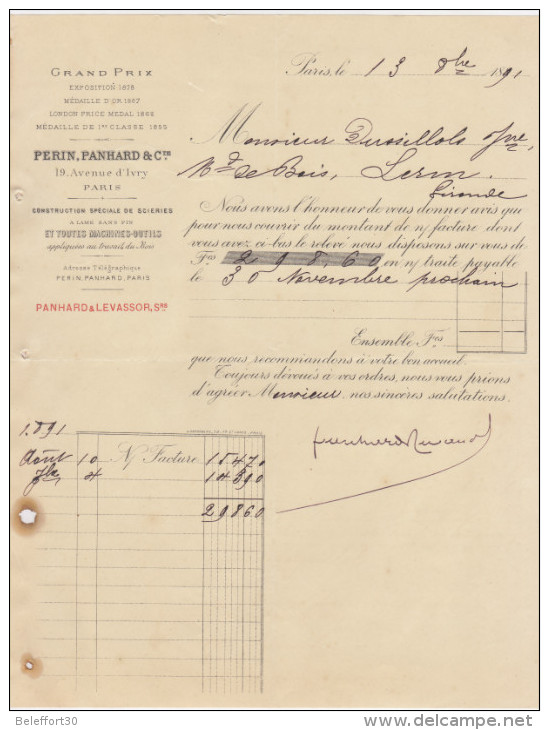 GRAND PRIX
EXPOSITION 1878
MÉDAILLE D'OR 1867
LONDON PRICE MEDAL 1862
MÉDAILLE DE 1re CLASSE 1855
PERIN, PANHARD & Cie
19, Avenue d'Ivry
PARIS
CONSTRUCTION SPÉCIALE DE SCIERIES
A LAME SANS FIN
ET TOUTES MACHINES-OUTILS
appliquées au travail du Bois
Adresse Télégraphique
PERIN, PANHARD, PARIS
PANHARD & LEVASSOR, Srs
Paris, le 13 8bre 1891
Monsieur
Md de Bois, Lerm
Gironde
Nous avons l'honneur de vous donner avis que
pour nous couvrir du montant de n/ facture dont
vous avez ci-bas le relevé nous disposons sur vous de
Frs 298,60 en n/ traite payable
le 30 Novembre prochain
Ensemble Frs
que nous recommandons à votre bon accueil.
Toujours dévoués à vos ordres, nous vous prions
d'agréer Monsieur nos sincères salutations.
1891
Août 10 N/ Facture 154 70
7bre 4 143 90
298 60
Beleffort30
www.delcampe.net